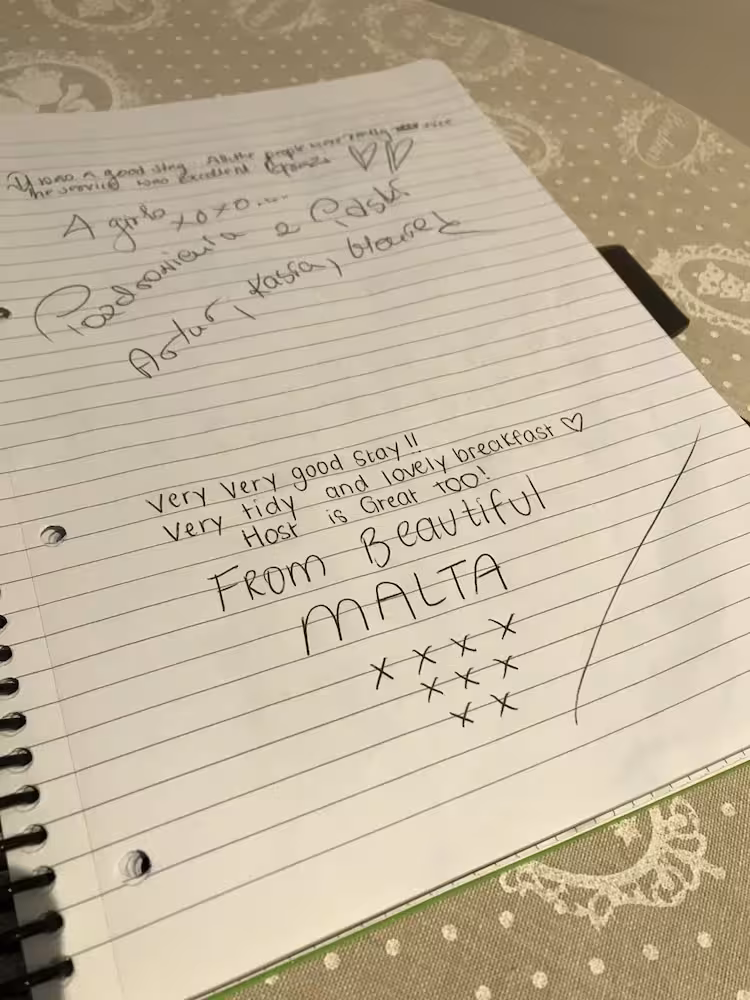 It was a good stay. All the people were really nice
the service was excellent
A girls xoxo....
Pozdrowienia z Polski
Artur, Kasia,
Very Very good stay!!
Very tidy and lovely breakfast ♡
Host is Great too!
From Beautiful
MALTA
x x x x
x x x
x x